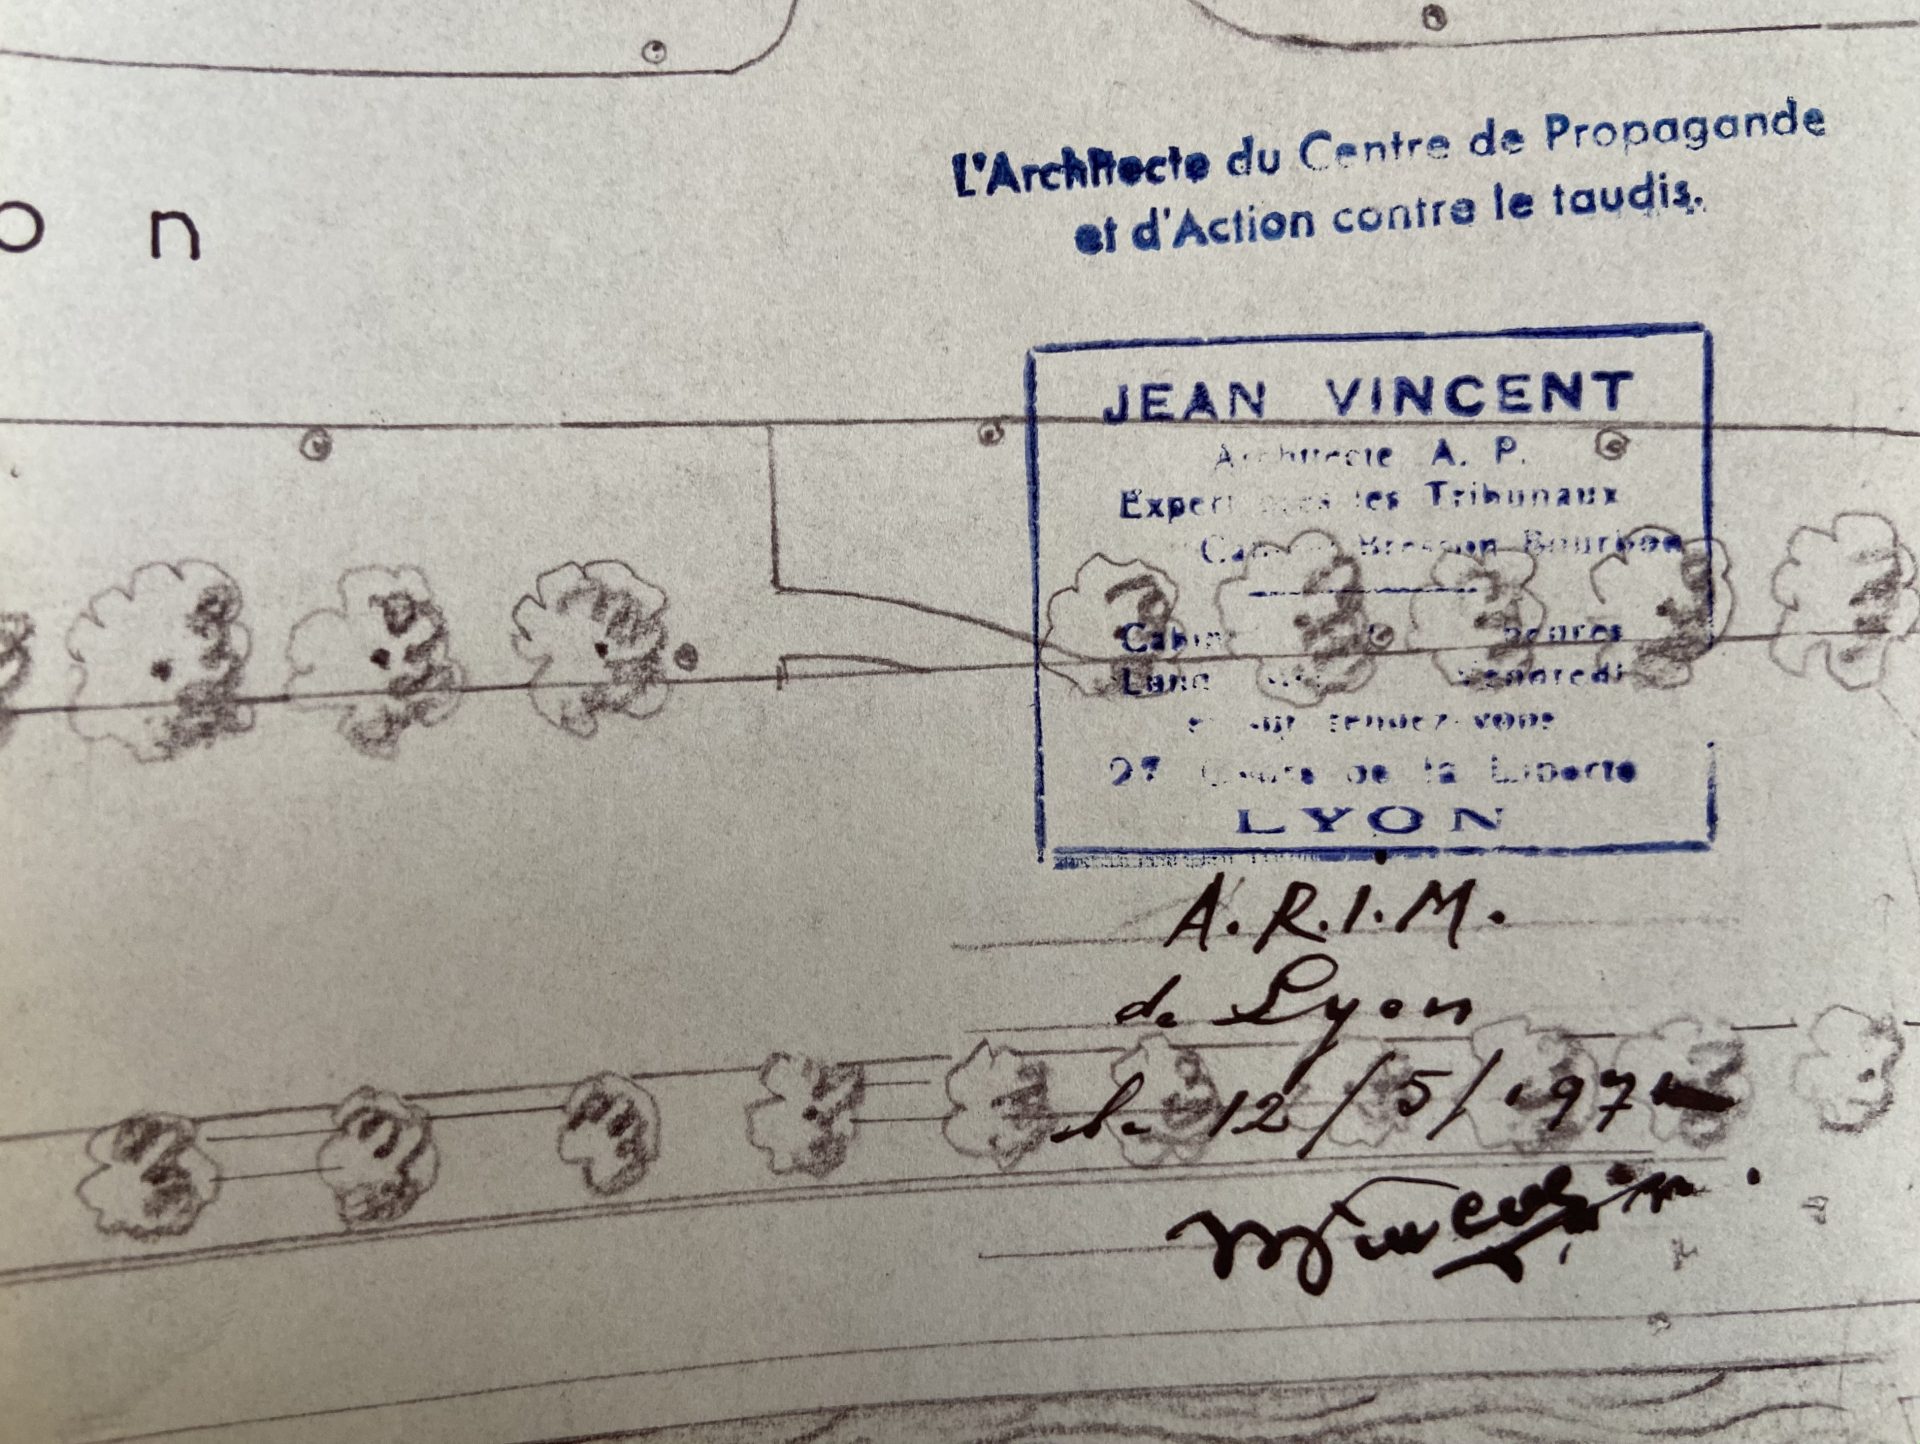 L'Architecte du Centre de Propagande
et d'Action contre le taudis.
o n
JEAN VINCENT
Architecte A. P.
Expert près les Tribunaux
Bresson Bourbon
Vendredi
et sur rendez-vous
27 Cours de la Liberté
LYON
A.R.I.M.
de Lyon
le 12/5/197